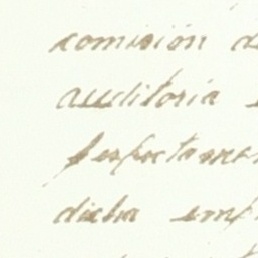 comisión de
auditoria
perfectamen
dicha emp